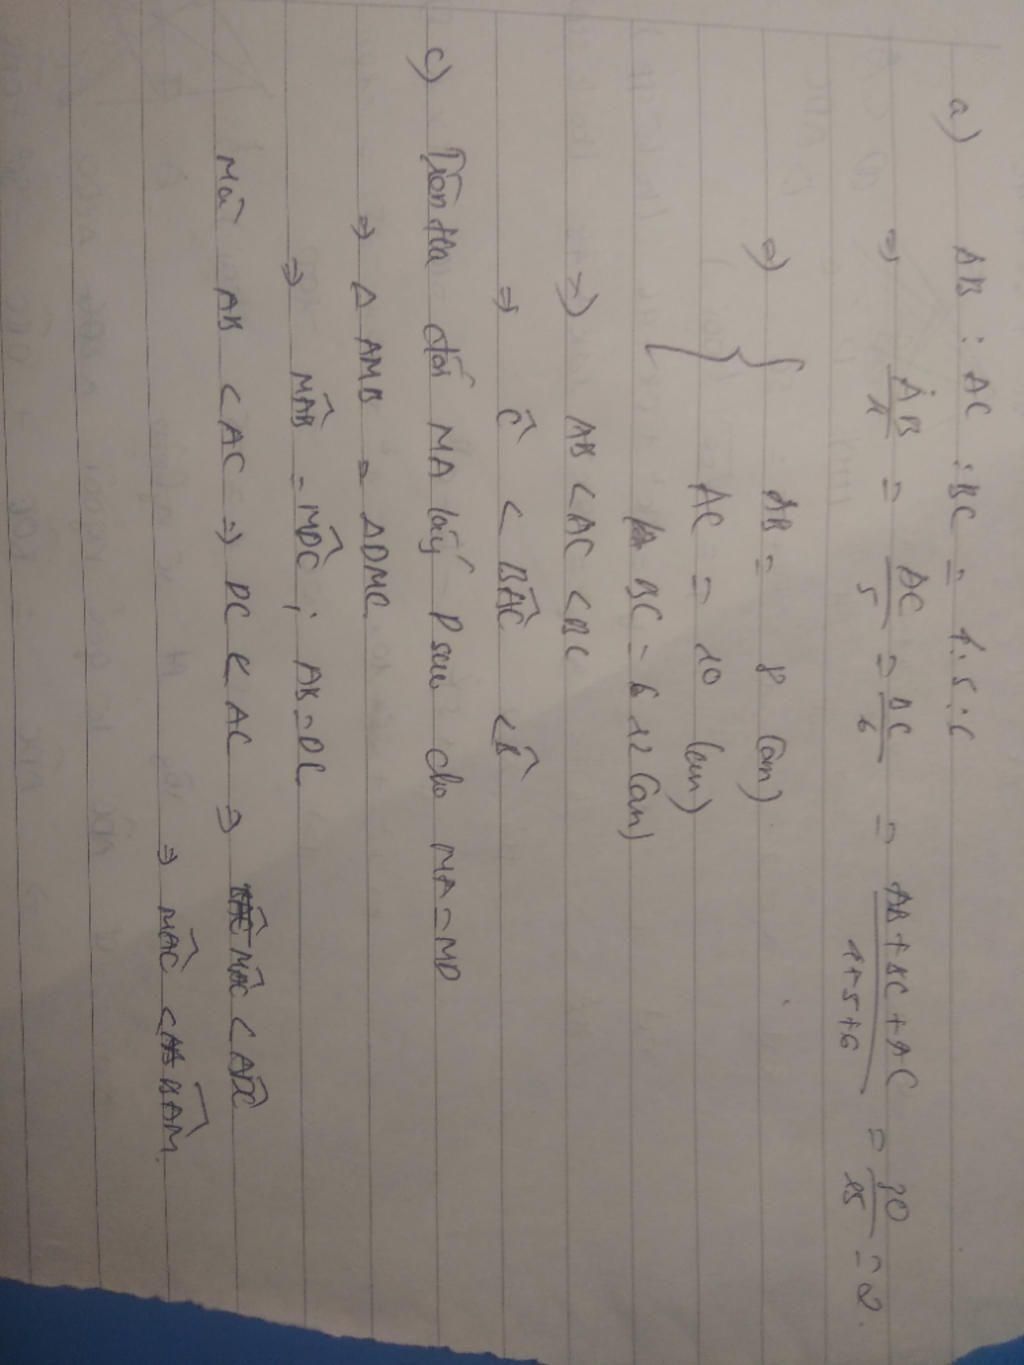 a) AB : AC : BC = 4 : 5 : 6
=> AB/4 = AC/5 = BC/6 = AB+BC+AC/4+5+6 = 30/15 = 2.
=> AB = 8 (cm)
AC = 10 (cm)
BC = 12 (cm)
=> AB < AC < BC
=> Ĉ < BÂC < B̂
c) Trên tia đối MA lấy D sao cho MA = MD
=> Δ AMB = Δ DMC.
=> MÂB = MD̂C ; AB = DC
Mà AB < AC => DC < AC => MÂC < AD̂C
=> MÂC < BÂM.